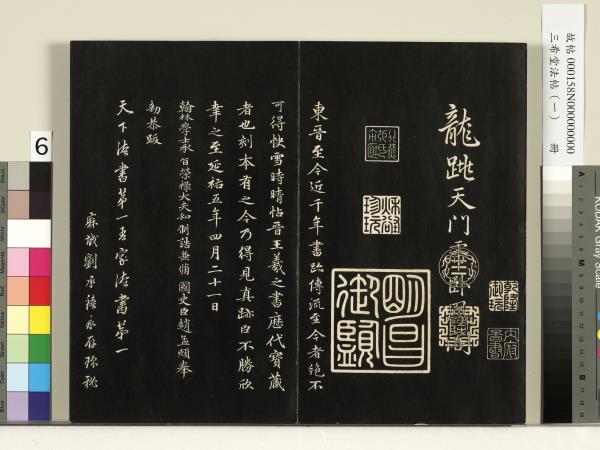 故帖 000158N000000000
三希堂法帖（一） 冊
龍跳天門
明昌御覽
乾隆御玩
內府書畫
秘殿珍玩
東晉至今近千年書跡傳流至今者絶不
可得快雪時晴帖晉王羲之書歷代寶藏
者也刻本有之今乃得見真跡臣不勝欣
幸之至延祐五年四月二十一日
翰林學士承旨榮祿大夫知制誥兼脩國史臣趙孟頫奉
勑恭跋
天下法書第一吾家法書第一
麻城劉承禧永存珍秘
6
KODAK Gray Scale
A
M
B
Black
3/Color
White
Magenta
Red
Yellow
Green
Cyan
Blue